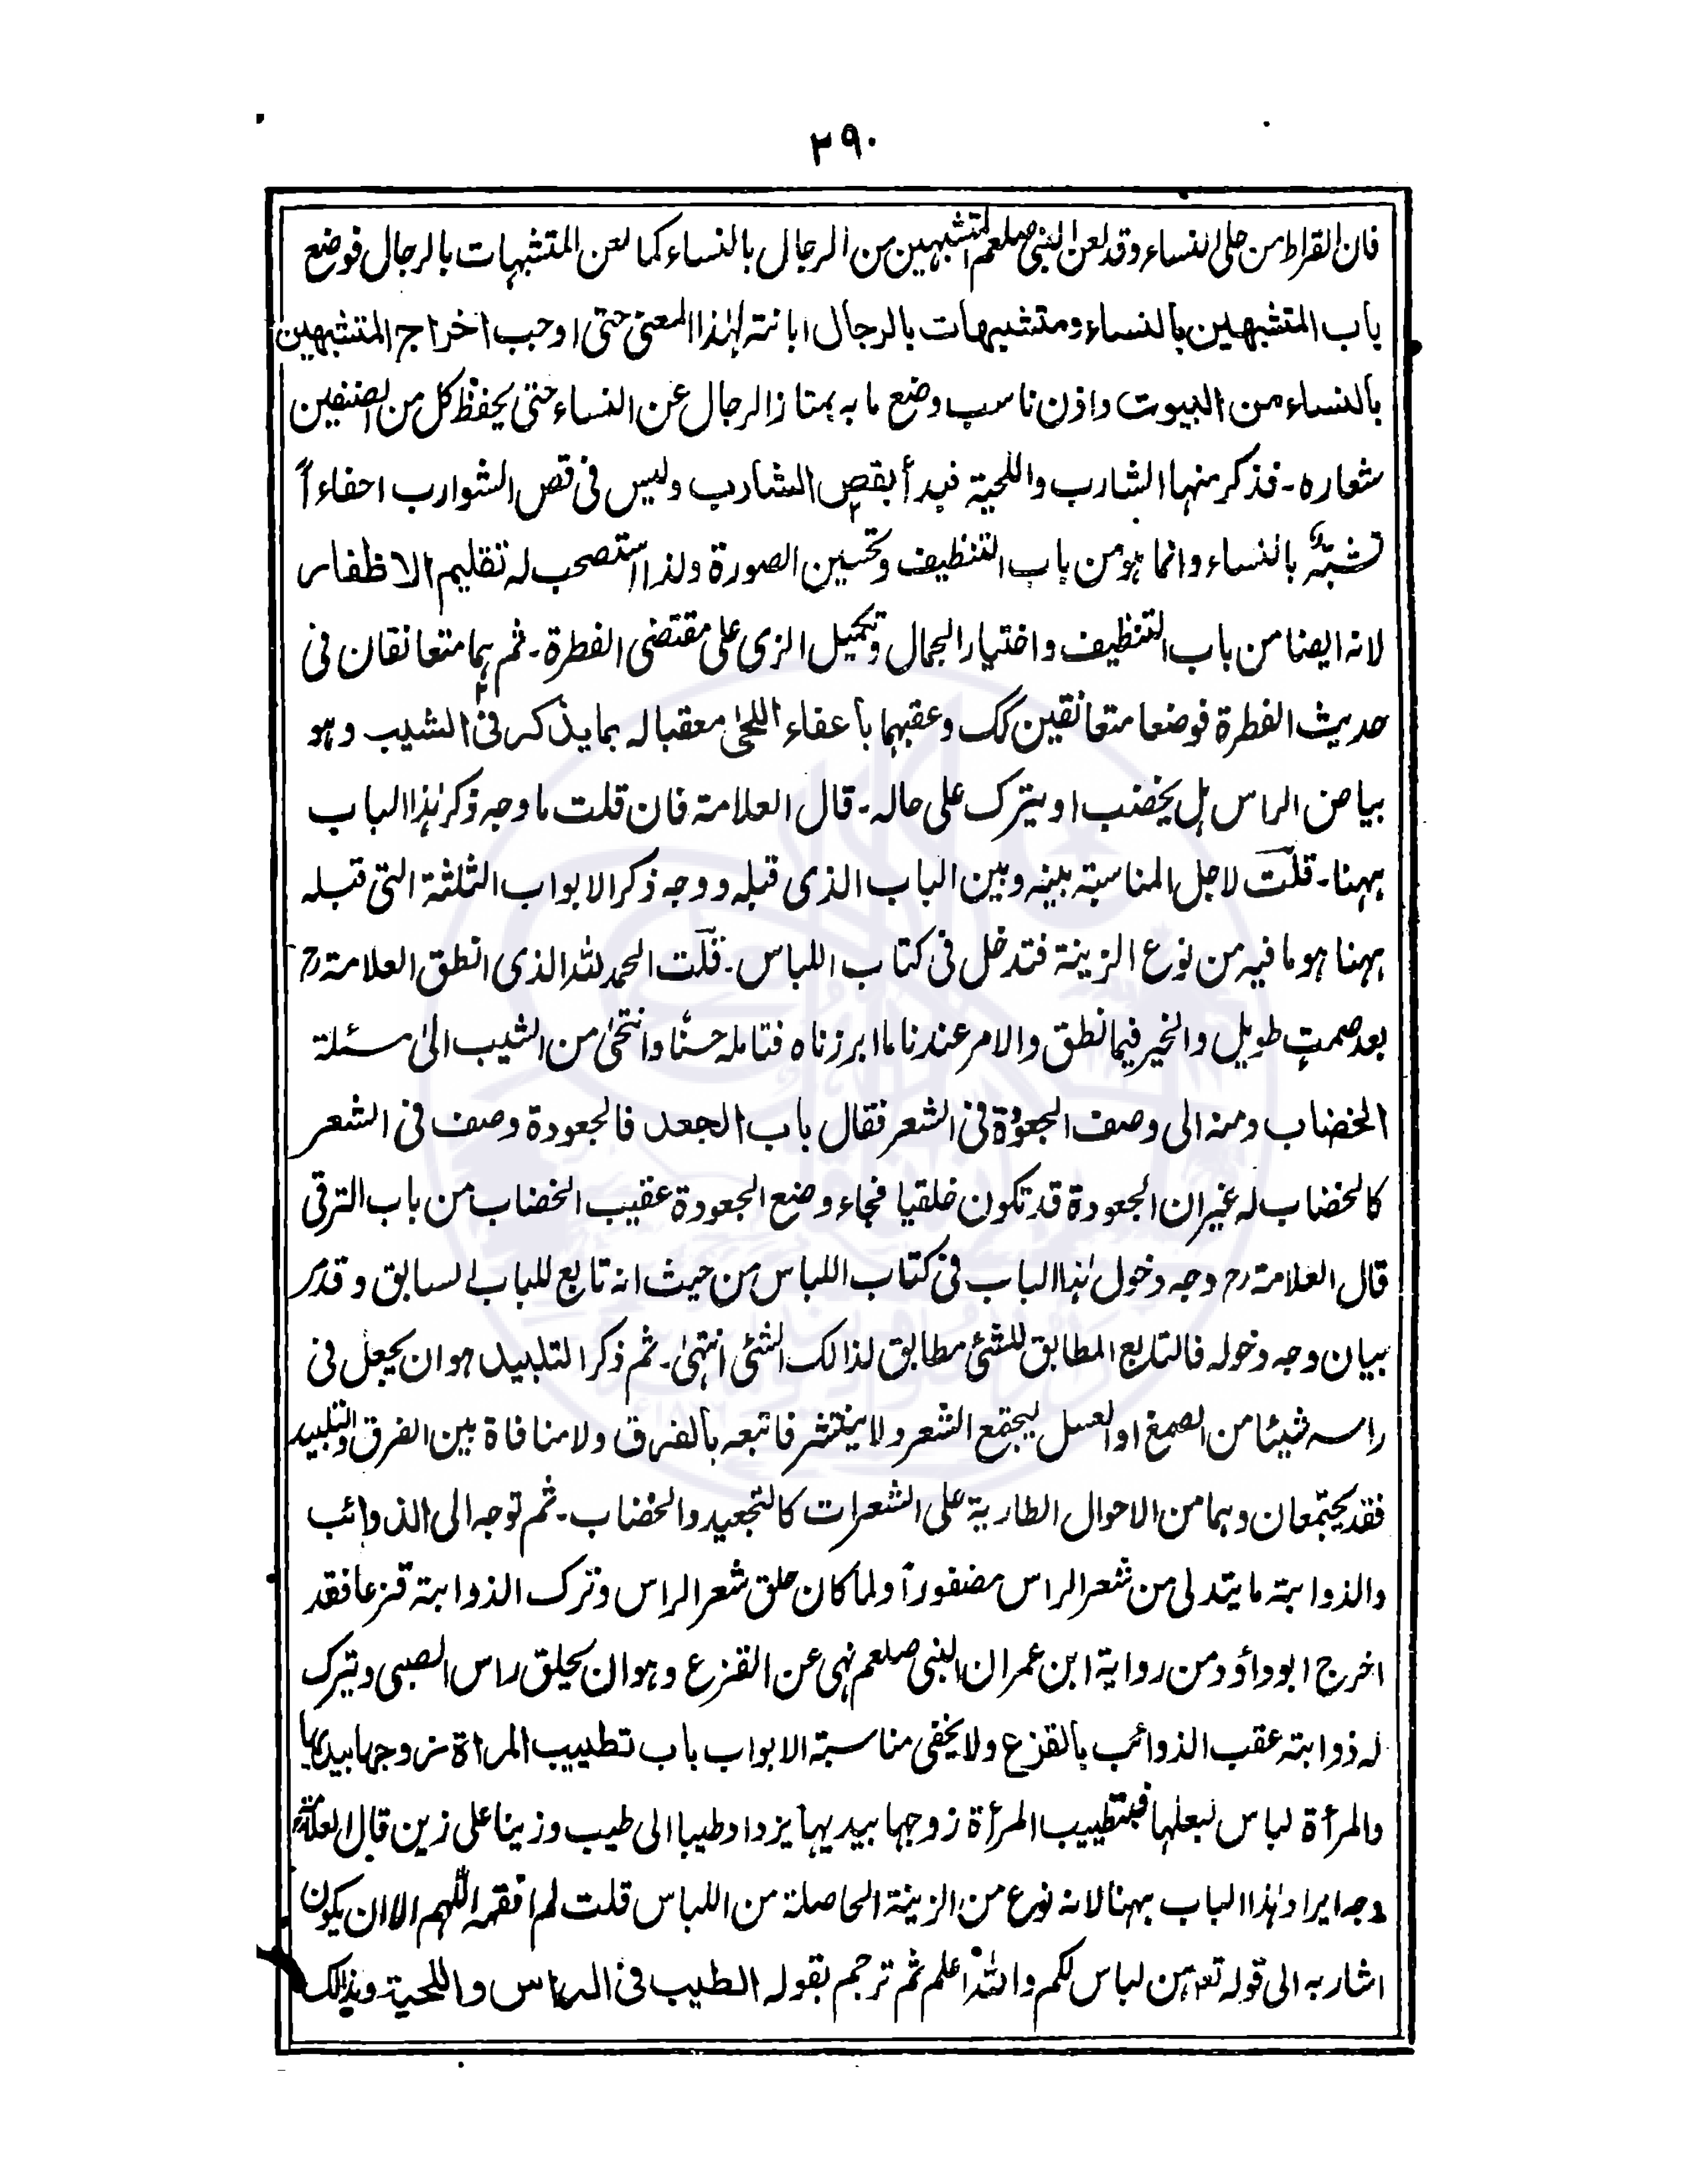 ٢٩٠
فان القراط من حلى النساء وقد لعن النبى صلعم المتشبهين من الرجال بالنساء كما لعن المتشبهات بالرجال فوضع
باب المتشبهين بالنساء ومتشبهات بالرجال ابانته لهذا المعنى حتى اوجب اخراج المتشبهين
بالنساء من البيوت واذن ناسب وضع ما به يمتاز الرجال عن النساء حتى يحفظ كل من الصنفين
شعاره ـ فذكر منها الشارب واللحية فبدأ بقص الشارب وليس فى قص الشوارب احفاءاً
تشبّهٌ بالنساء وانما هو من باب التنظيف وتحسين الصورة ولذا استصحب له تقليم الاظفار
لانه ايضا من باب التنظيف واختيار الجمال وتكميل الزى على مقتضى الفطرة ـ ثم هما متعانقان فى
حديث الفطرة فوضعا متعانقين كك وعقبهما باعفاء اللحىٰ معقبا له بما يذكر فى الشيب وهو
بياض الراس هل يخضب او يترك على حاله ـ قال العلامة فان قلت ما وجه ذكر هذا الباب
ههنا ـ قلت لاجل المناسبة بينه وبين الباب الذى قبله ووجه ذكر الابواب الثلثة التى قبله
ههنا هو ما فيه من نوع الزينة فتدخل فى كتاب اللباس ـ قلت الحمد لله الذى انطق العلامة رح
بعد صمت طويل والخير فيما نطق والامر عندنا ما ابرزناه فتامله حسنًا وانتحىٰ من الشيب الىٰ مسئلة
الخضاب ومنه الى وصف الجعودة فى الشعر فقال باب الجعد فالجعودة وصف فى الشعر
كالخضاب له غير ان الجعودة قد تكون خلقيا فجاء وضع الجعودة عقيب الخضاب من باب الترقى
قال العلامة رح وجه دخول هذا الباب فى كتاب اللباس من حيث انه تابع للباب لسابق وقد مر
بيان وجه دخوله فالتابع المطابق للشئ مطابق لذالك الشئ انتهىٰ ـ ثم ذكر التلبيد هو ان يجعل فى
راسه شيئا من الصمغ او العسل ليجتمع الشعر ولا ينتشر فاتبعه بالفرق ولا منافاة بين الفرق والتلبيد
فقد يجتمعان وهما من الاحوال الطارية على الشعرات كالتجعيد والخضاب ـ ثم توجه الى الذوائب
والذوابته ما يتدلى من شعر الراس مضفوراً ولما كان حلق شعر الراس وترك الذوابته قزعا فقد
اخرج ابوداؤد من رواية ابن عمر ان النبى صلعم نهى عن القزع وهو ان يحلق راس الصبى ويترك
له ذوابته عقب الذوائب بالقزع ولا يخفى مناسبة الابواب باب تطييب المراة زوجها بيديها
والمرأة لباس لبعلها فبتطييب المرأة زوجها بيديها يزداد طيبا الى طيب وزينا على زين قال العلامة رح
وجه ايراد هذا الباب ههنا لانه نوع من الزينة الحاصلة من اللباس قلت لم افقه اللهم الا ان يكون
اشار به الى قوله تعه هن لباس لكم والله اعلم ثم ترجم بقوله الطيب فى الراس واللحية وبذالك